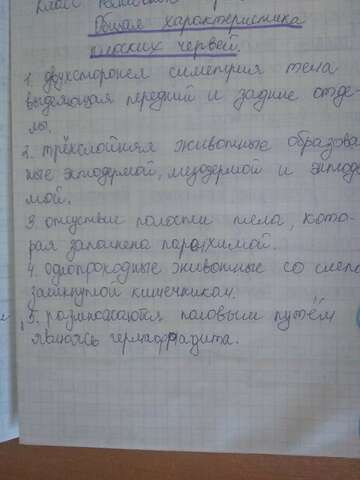 Класс
Общая характеристика
плоских червей.
1. двухсторонем симетрия тела
выделющая передний и задние отде-
лы.
2. трёхслойняя животные образова
ные эктодермой, мезодермой и энтоде
мой.
3. отцуствие полости тела, кото-
рая заполнена паронхимой.
4. однопроходные животные со слепо
замкнутой кишечником.
5. размножаются половым путём
являясь гермафродита.